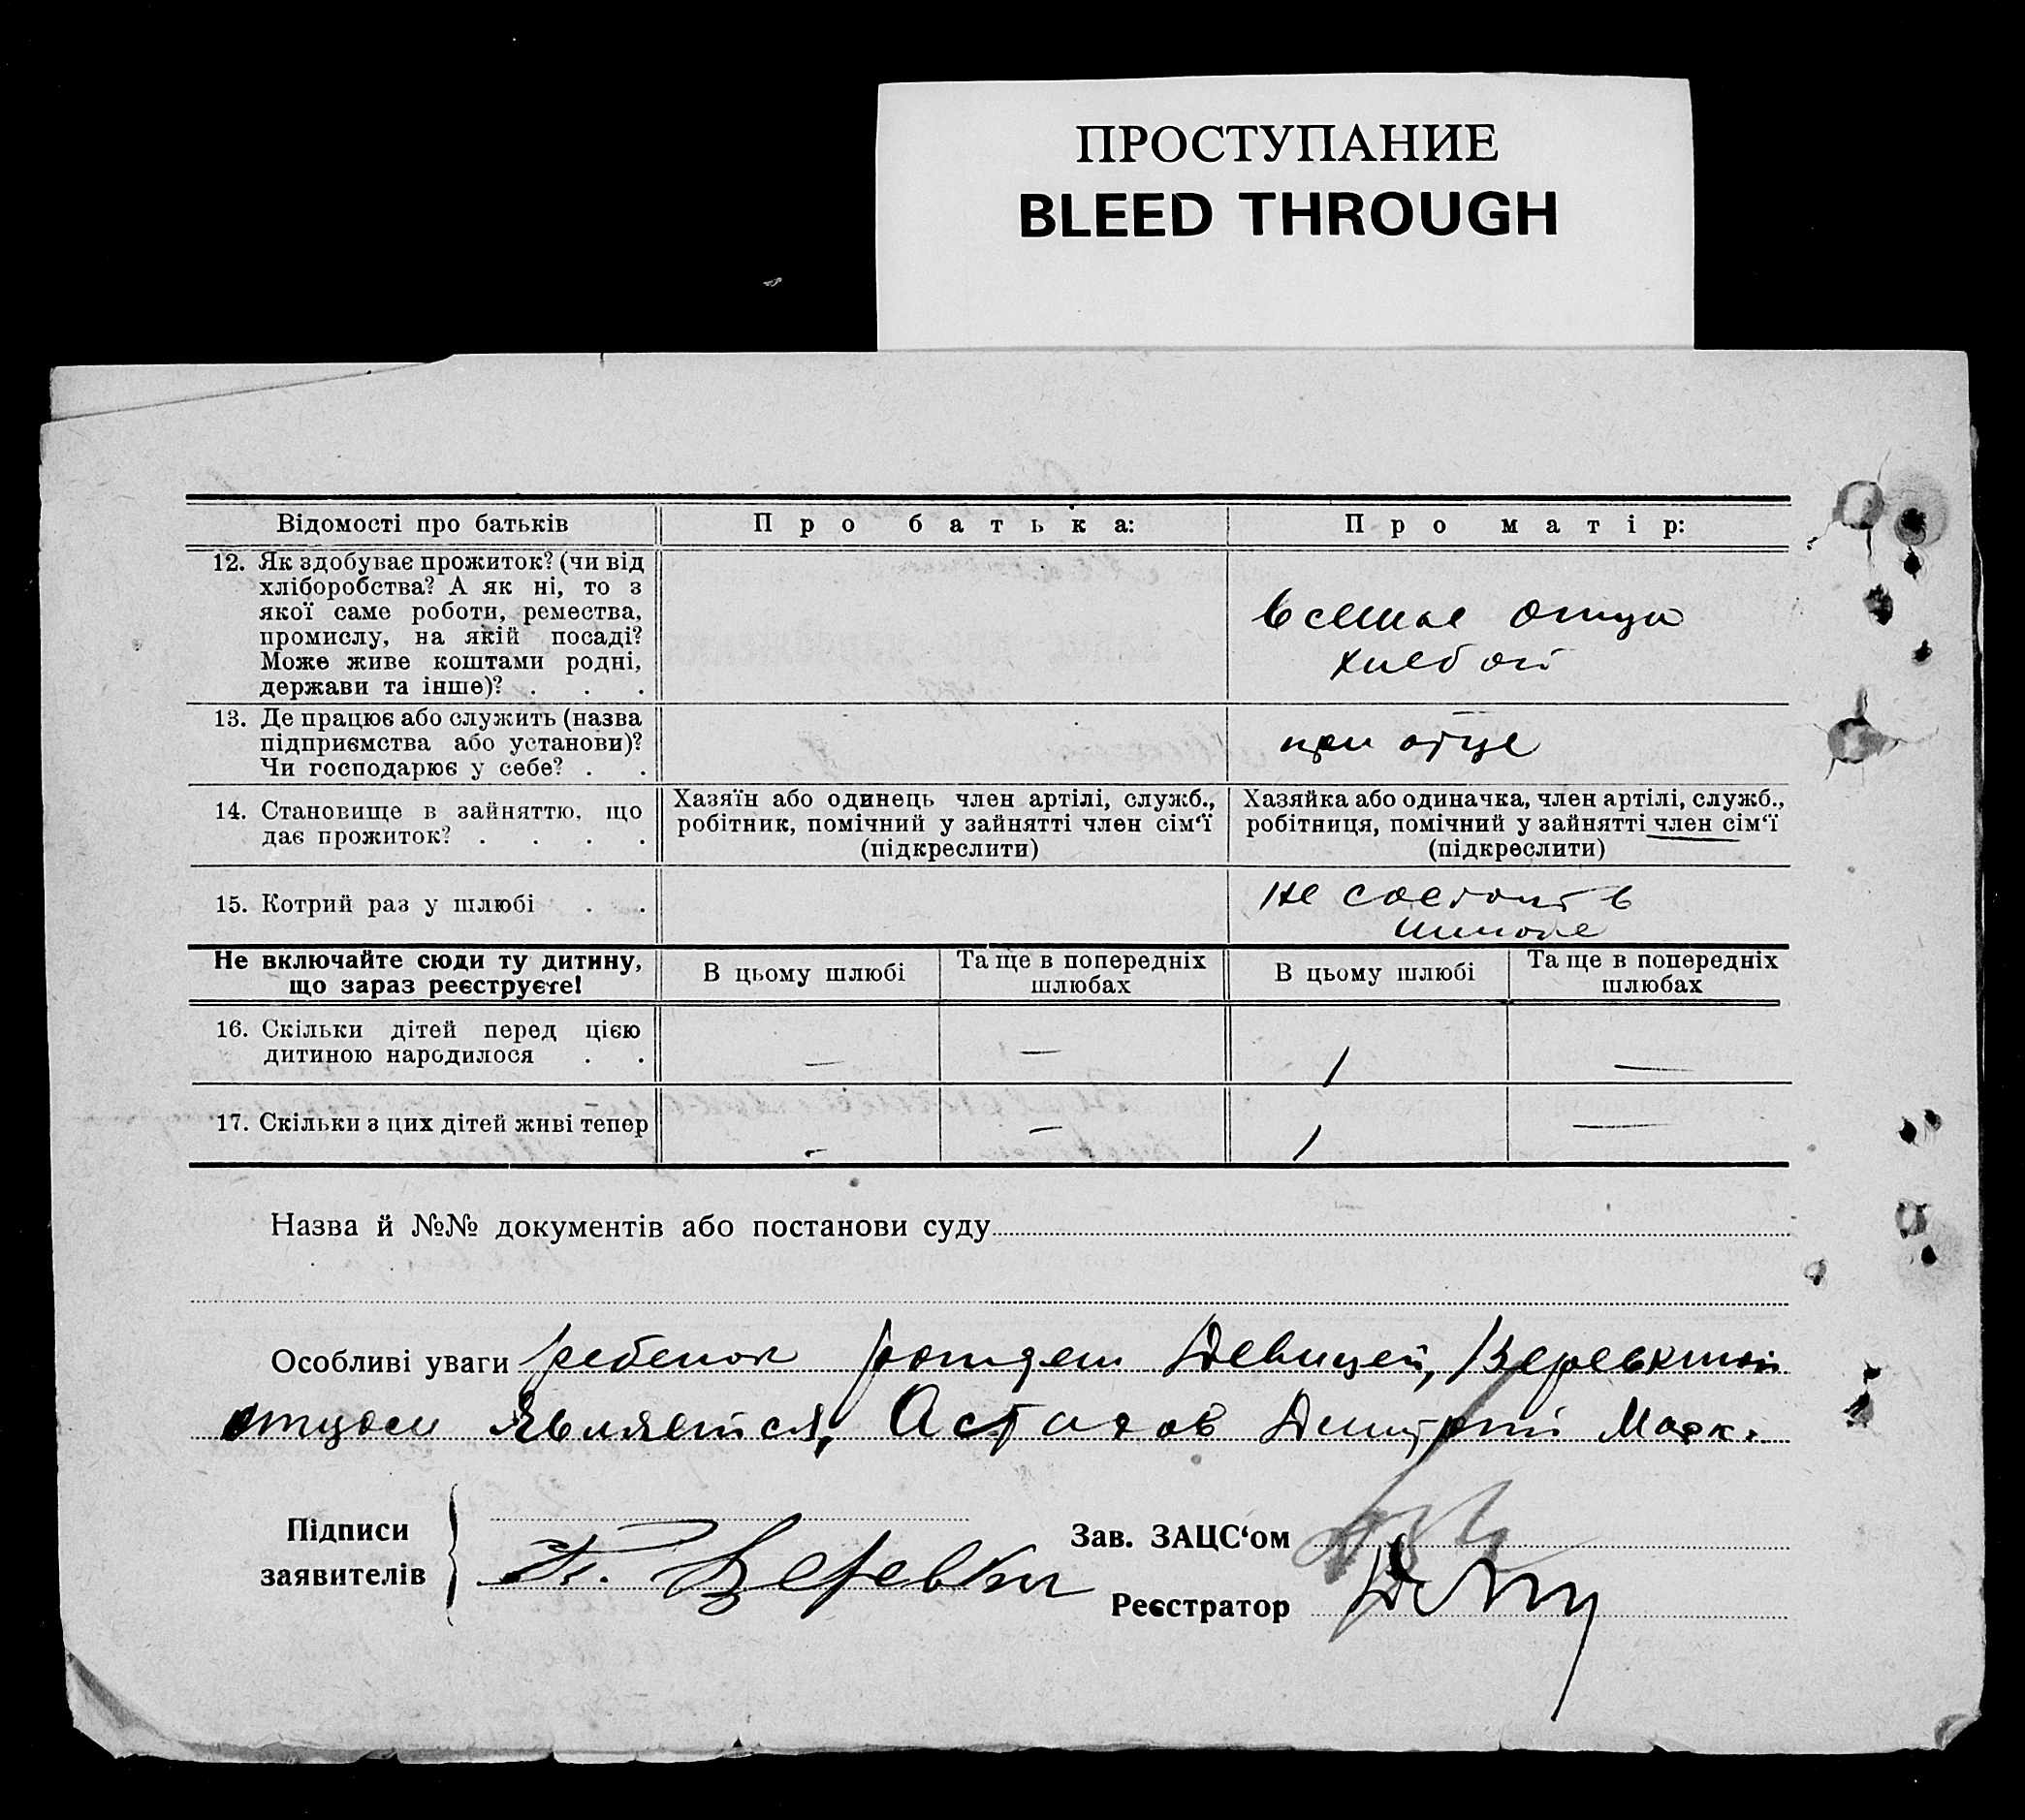 ПРОСТУПАНИЕ
BLEED THROUGH
Відомості про батьків
Про батька:
Про матір:
12. Як здобуває прожиток? (чи від
хліборобства? А як ні, то з
якої саме роботи, ремества,
промислу, на якій посаді?
Може живе коштами родні,
держави та інше)? . . .
в семье отца
хлебоп
13. Де працює або служить (назва
підприємства або установи)?
Чи господарює у себе? . .
при отце
14. Становище в зайняттю, що
дає прожиток? . . . .
Хазяїн або одинець член артілі, служб.,
робітник, помічний у зайнятті член сім‘ї
(підкреслити)
Хазяйка або одиначка, член артілі, служб.,
робітниця, помічний у зайнятті член сім‘ї
(підкреслити)
15. Котрий раз у шлюбі . .
не состоит в
Не включайте сюди ту дитину,
що зараз реєструєте!
В цьому шлюбі
Та ще в попередніх
шлюбах
В цьому шлюбі
Та ще в попередніх
шлюбах
16. Скільки дітей перед цією
дитиною народилося . .
— — 1 —
17. Скільки з цих дітей живі тепер
- — 1 —
Назва й №№ документів або постанови суду
Особливі уваги ребенок рожден Девицей, Веревкиной
отцом является, Астахов Дмитрий Марк.
Підписи
заявителів
Веревки
Зав. ЗАЦС‘ом
Реєстратор